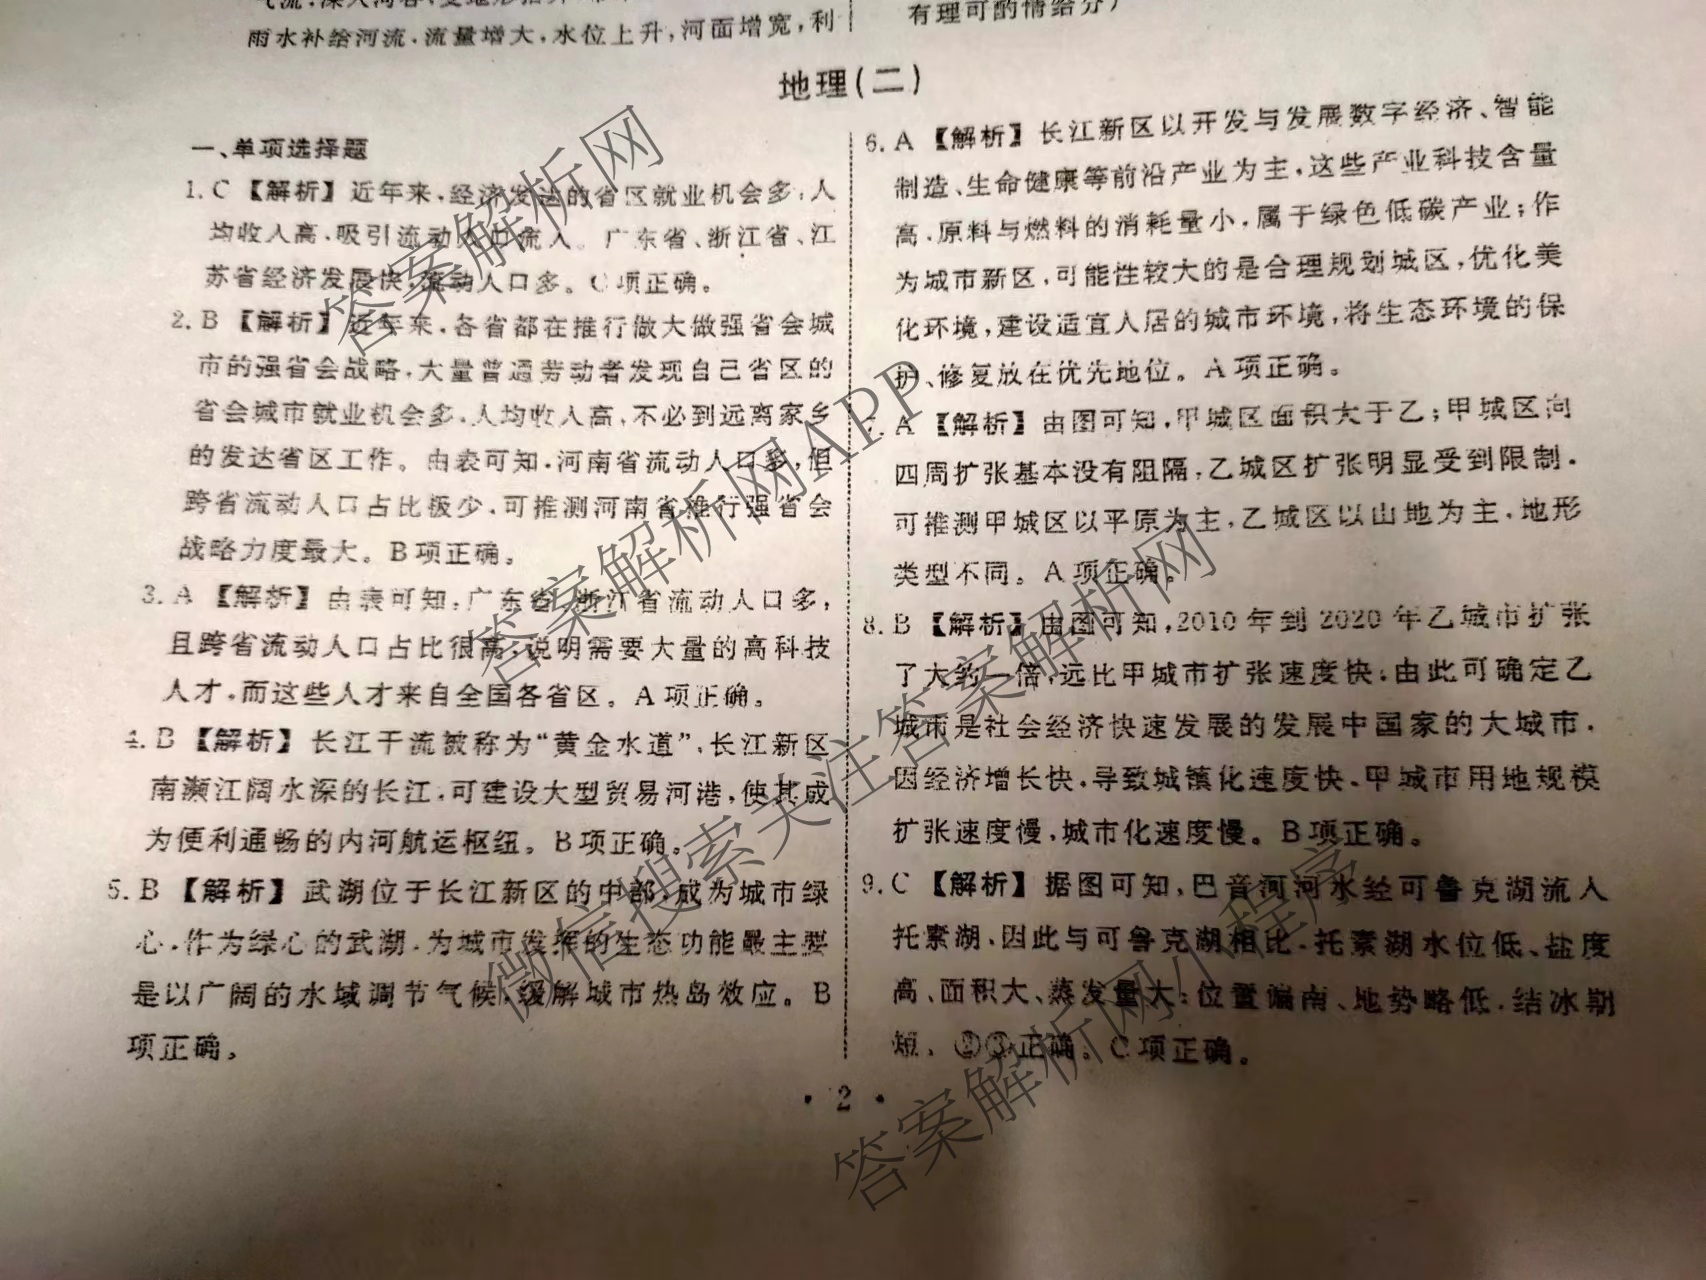 雨水补给河流,流量增大,水位上升,河面增宽,利
有理可酌情给分)
地理(二)
一、单项选择题
1.C 【解析】近年来,经济发达的省区就业机会多,人
均收入高,吸引流动人口流入。广东省、浙江省、江
苏省经济发展快,流动人口多。C项正确。
2.B 【解析】近年来,各省都在推行做大做强省会城
市的强省会战略,大量普通劳动者发现自己省区的
省会城市就业机会多,人均收入高,不必到远离家乡
的发达省区工作。由表可知,河南省流动人口多,但
跨省流动人口占比极少,可推测河南省推行强省会
战略力度最大。B项正确。
3.A 【解析】由表可知,广东省、浙江省流动人口多,
且跨省流动人口占比很高,说明需要大量的高科技
人才,而这些人才来自全国各省区。A项正确。
4.B 【解析】长江干流被称为“黄金水道”,长江新区
南濒江阔水深的长江,可建设大型贸易河港,使其成
为便利通畅的内河航运枢纽。B项正确。
5.B 【解析】武湖位于长江新区的中部,成为城市绿
心,作为绿心的武湖,为城市发挥的生态功能最主要
是以广阔的水域调节气候,缓解城市热岛效应。B
项正确。
6.A 【解析】长江新区以开发与发展数字经济、智能
制造、生命健康等前沿产业为主,这些产业科技含量
高,原料与燃料的消耗量小,属于绿色低碳产业;作
为城市新区,可能性较大的是合理规划城区,优化美
化环境,建设适宜人居的城市环境,将生态环境的保
护、修复放在优先地位。A项正确。
7.A 【解析】由图可知,甲城区面积大于乙;甲城区向
四周扩张基本没有阻隔,乙城区扩张明显受到限制,
可推测甲城区以平原为主,乙城区以山地为主,地形
类型不同。A项正确。
8.B 【解析】由图可知,2010年到2020年乙城市扩张
了大约一倍,远比甲城市扩张速度快;由此可确定乙
城市是社会经济快速发展的发展中国家的大城市,
因经济增长快,导致城镇化速度快,甲城市用地规模
扩张速度慢,城市化速度慢。B项正确。
9.C 【解析】据图可知,巴音河河水经可鲁克湖流入
托素湖,因此与可鲁克湖相比,托素湖水位低、盐度
高、面积大、蒸发量大;位置偏南、地势略低,结冰期
短,②③正确。C项正确。
· 2 ·
答案解析网
答案解析网APP
微信搜索关注答案解析网
答案解析网小程序